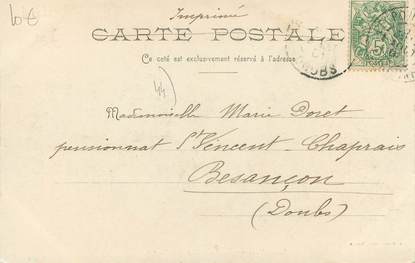 10€
Imprimé
CARTE POSTALE
Ce coté est exclusivement réservé à l'adresse
44
Mademoiselle Marie Doret
pensionnat St Vincent - Chaprais
Besançon
(Doubs)
5
POSTES
DOUBS